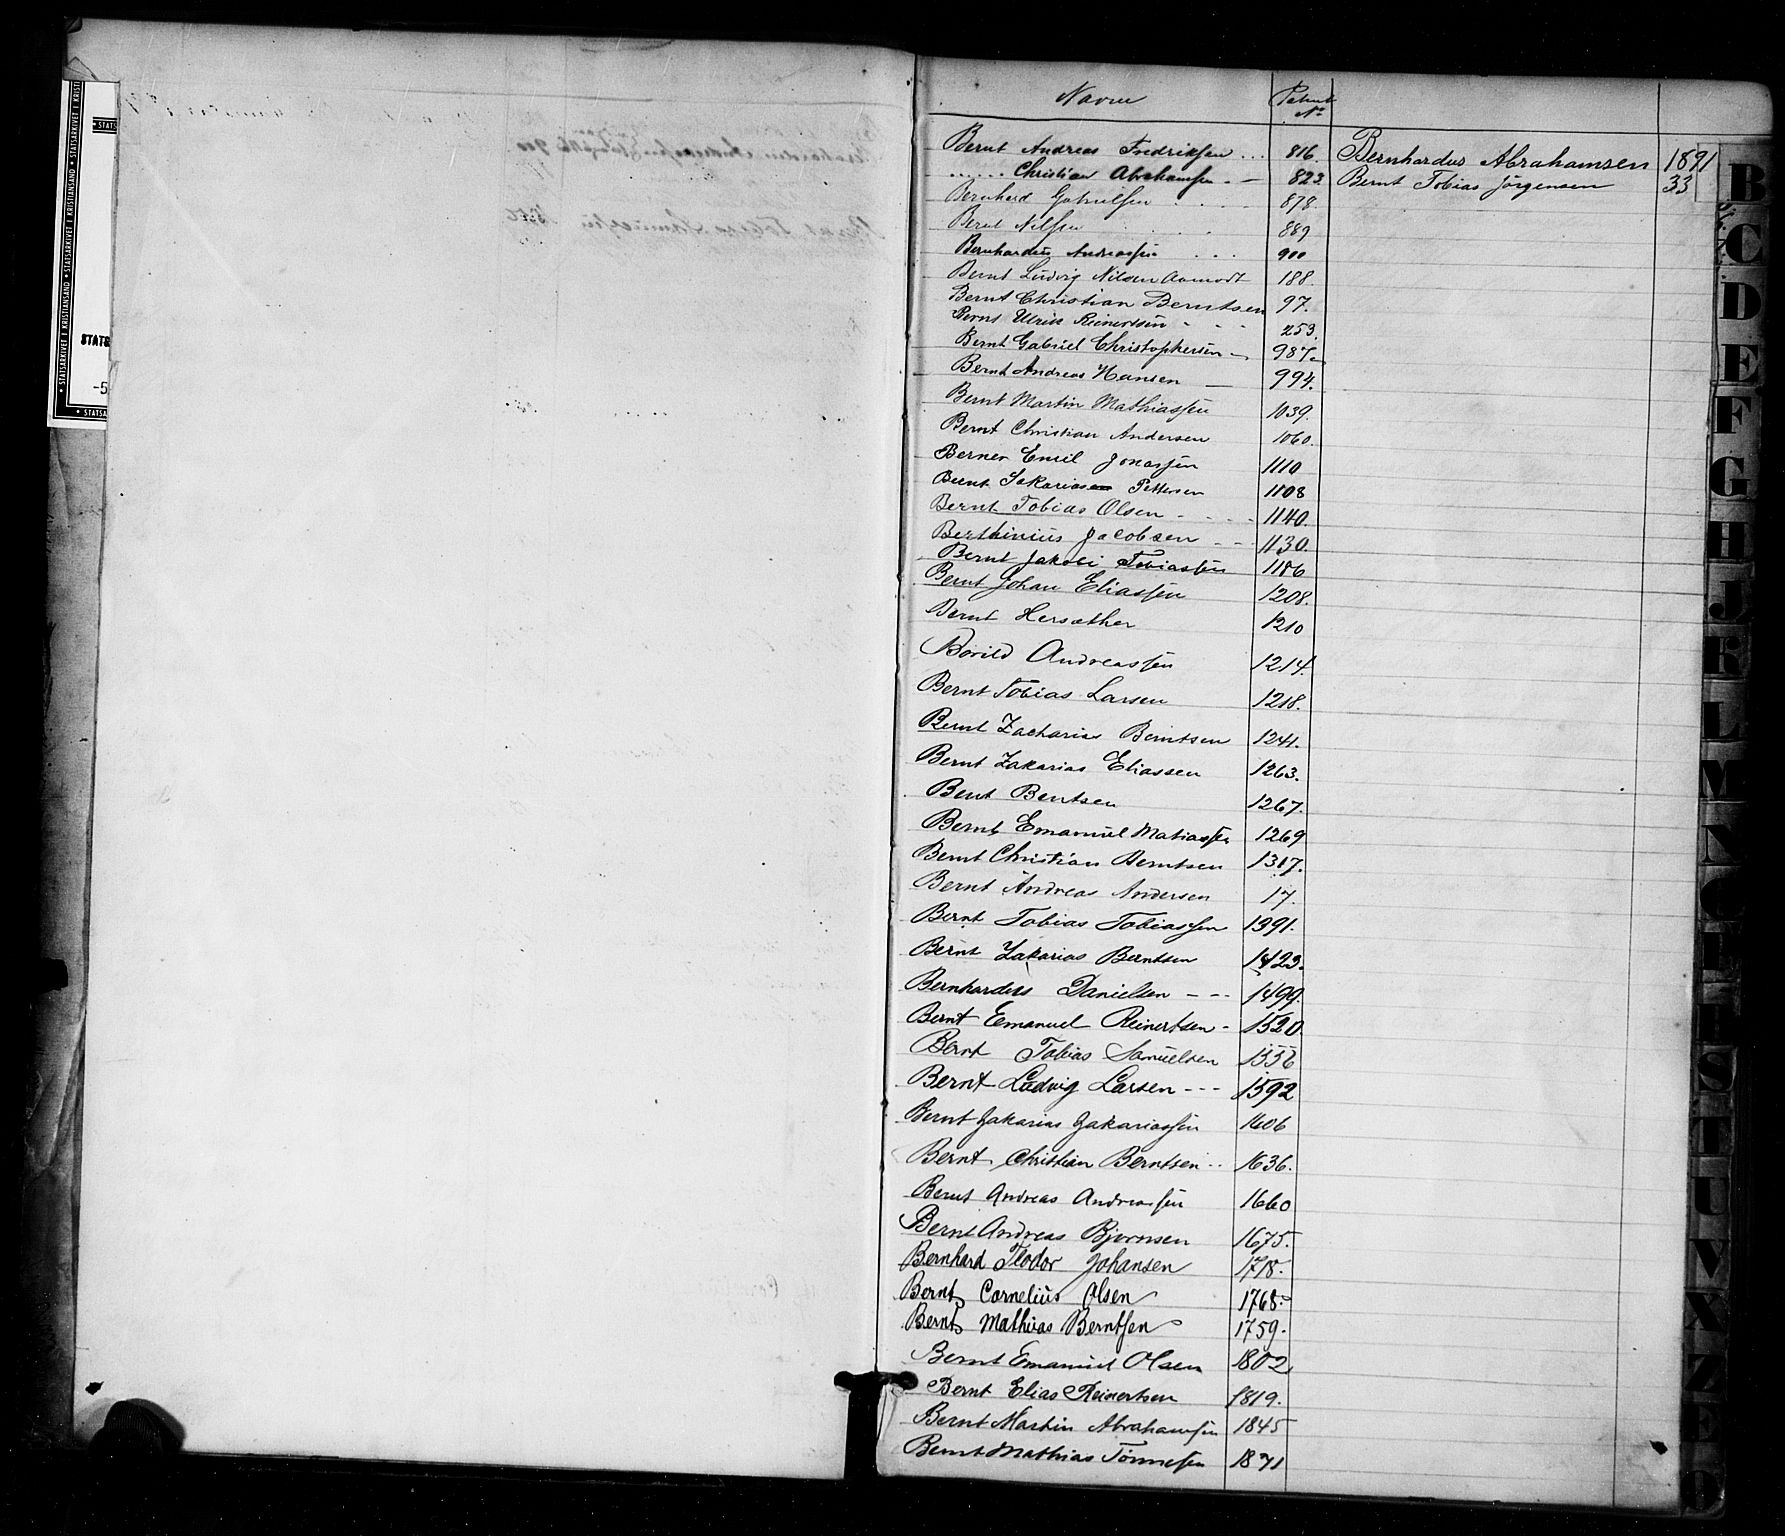 Navn Patent No
Bernt Andreas Fredriksen ... 816. Bernhardus Abrahamsen 1891
...... Christian Abrahamsen. — 823. Bernt Tobias Jörgensen 33
Bernhard Gabrielsen . . . . 878.
Bernt Nilsen . . . 889
Bernhardus Andreassen . . . 900
Bernt Ludvig Nilsen Aamodt 188.
Bernt Christian Berntsen 97.
Bernt Ulrik Reinertsen - - - 253.
Bernt Gabriel Christophersen — 987.
Bernt Andreas Hansen — 994.
Bernt Martin Mathiassen 1039.
Bernt Christian Andersen 1060.
Berner Emil Jonassen 1110
Bernt Sakarias Pettersen 1108
Bernt Tobias Olsen - - - - 1140.
Berthinius Jacobsen - - - 1130.
Bernt Jakobi Tobiassen 1186
Bernt Johan Eliassen 1208.
Bernt Hersæther 1210
Borild Andreassen 1214.
Bernt Tobias Larsen 1218.
Bernt Zacharias Berntsen 1241.
Bernt Zakarias Eliassen 1263.
Bent Bentsen 1267.
Bernt Emanuel Matiassen 1269
Bernt Christian Berntsen 1317.
Bernt Andreas Andersen 17.
Bernt Tobias Tobiassen 1391.
Bernt Zakarias Berntsen 1423.
Bernhardus Danielsen - - - 1499.
Bernt Emanuel Reinertsen - 1520
Bernt Tobias Samuelsen 1556
Bernt Ludvig Larsen - - - 1592
Bernt Zakarias Zakariassen 1606
Bernt Christian Berntsen .. 1636.
Bernt Andreas Andreassen 1660
Bernt Andreas Bjornsen 1675.
Bernhard Teodor Johansen 1718.
Bernt Cornelius Olsen 1768.
Bernt Mathias Berntsen 1759.
Bernt Emanuel Olsen 1802
Bernt Elias Reinertsen 1819.
Bernt Martin Abrahamsen 1845
Bernt Mathias Tönnesen 1871
B
C
D
E
F
G
H
J
K
L
M
N
O
P
R
S
T
U
V
X
Z
Æ
Ø
STATSARKIVET I KRISTIANSAND